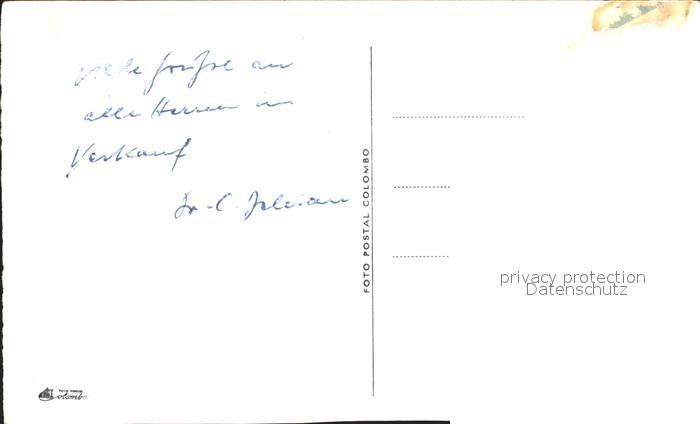 Viele Grüße an
alle Herren im
Verkauf
Dr. C.
FOTO POSTAL COLOMBO
privacy protection
Datenschutz
Colombo